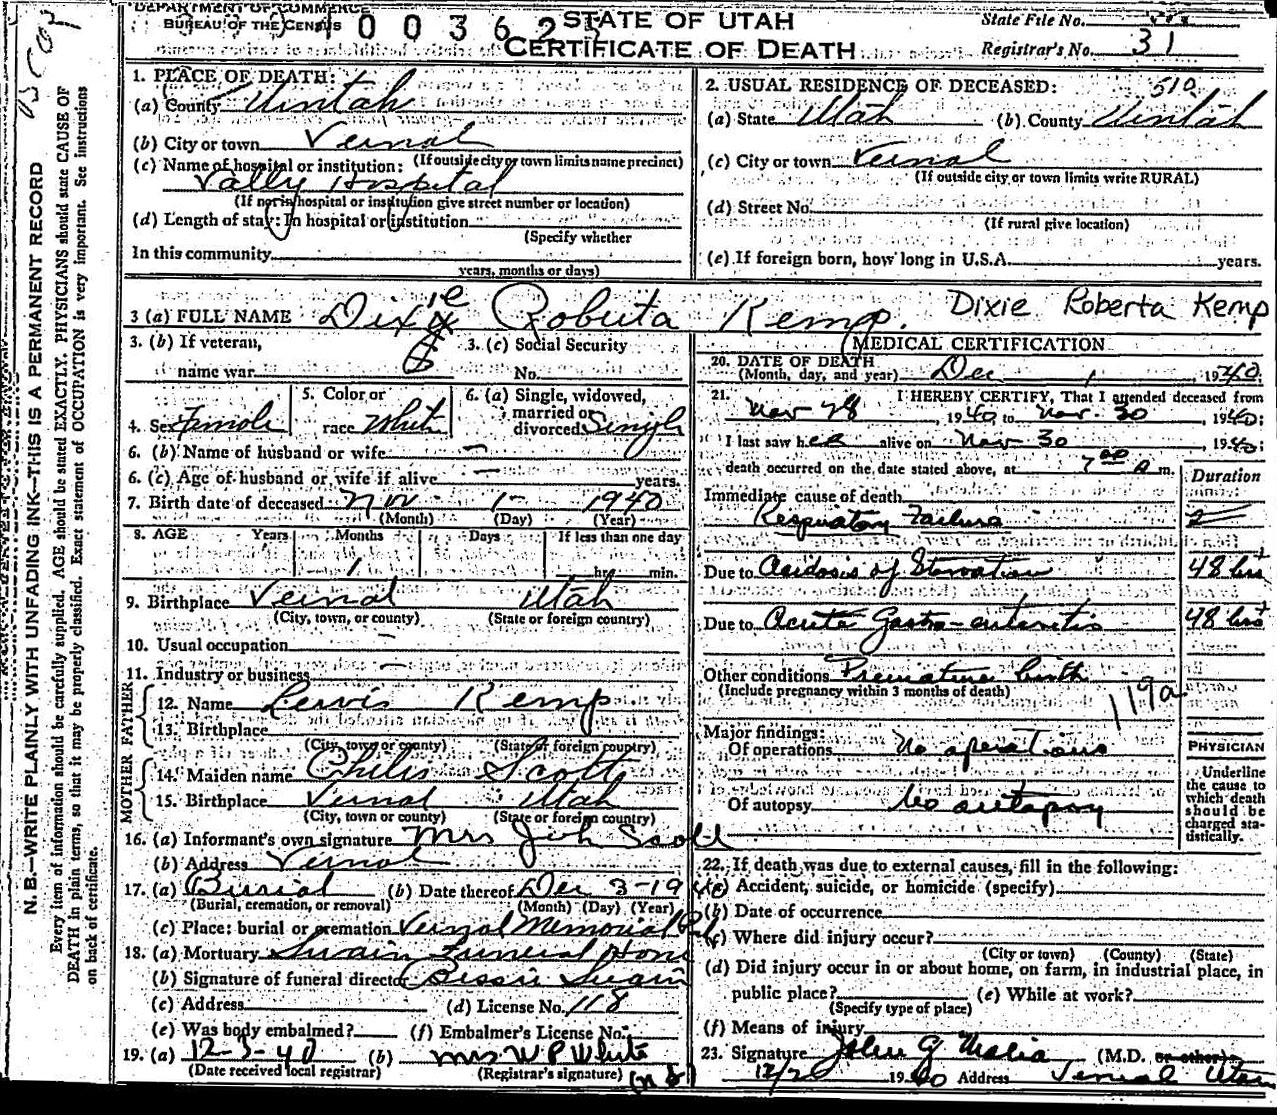 DEPARTMENT OF COMMERCE
BUREAU OF THE CENSUS
0 0 3 6 2
STATE OF UTAH
CERTIFICATE OF DEATH
State File No.
Registrar's No. 31
N. B.—WRITE PLAINLY WITH UNFADING INK—THIS IS A PERMANENT RECORD
Every item of information should be carefully supplied. AGE should be stated EXACTLY. PHYSICIANS should state CAUSE OF
DEATH in plain terms, so that it may be properly classified. Exact statement of OCCUPATION is very important. See instructions
on back of certificate.
1. PLACE OF DEATH:
(a) County Uintah
(b) City or town Vernal
(If outside city or town limits name precinct)
(c) Name of hospital or institution:
Vally Hospital
(If not in hospital or institution give street number or location)
(d) Length of stay: In hospital or institution
(Specify whether
In this community
years, months or days)
2. USUAL RESIDENCE OF DECEASED: 510
(a) State Utah (b) County Uintah
(c) City or town Vernal
(If outside city or town limits write RURAL)
(d) Street No.
(If rural give location)
(e) If foreign born, how long in U.S.A. years.
3 (a) FULL NAME Dixie Roberta Kemp. Dixie Roberta Kemp
3. (b) If veteran,
name war
3. (c) Social Security
No.
4. Sex Female
5. Color or
race White
6. (a) Single, widowed,
married or
divorced Single
6. (b) Name of husband or wife —
6. (c) Age of husband or wife if alive — years.
7. Birth date of deceased Nov 1- 1940
(Month) (Day) (Year)
8. AGE Years Months Days If less than one day
1 hr. min.
9. Birthplace Vernal Utah
(City, town, or county) (State or foreign country)
10. Usual occupation —
11. Industry or business —
FATHER
12. Name Lewis Kemp
13. Birthplace
(City, town or county) (State or foreign country)
MOTHER
14. Maiden name Philis Scott
15. Birthplace Vernal Utah
(City, town or county) (State or foreign country)
16. (a) Informant's own signature Mrs
(b) Address Vernal
17. (a) Burial (b) Date thereof Dec 3-1940
(Burial, cremation, or removal) (Month) (Day) (Year)
(c) Place: burial or cremation Vernal Memorial
18. (a) Mortuary Swain Funeral Home
(b) Signature of funeral director Bessie Swain
(c) Address (d) License No. 118
(e) Was body embalmed? (f) Embalmer's License No.
19. (a) 12-3-40 (b) Mrs W P White
(Date received local registrar) (Registrar's signature)
MEDICAL CERTIFICATION
20. DATE OF DEATH
(Month, day, and year) Dec 1, 1940
21. I HEREBY CERTIFY, That I attended deceased from
Nov 28, 1940 to Nov. 30, 1940;
I last saw her alive on Nov 30 1940;
death occurred on the date stated above, at 7 00 a m.
Duration
Immediate cause of death
Respiratory Failure
Due to Acidosis of Starvation 48 hrs +
Due to Acute Gastro-enteritis 48 hrs +
Other conditions Premature birth
(Include pregnancy within 3 months of death)
119a
Major findings:
Of operations No operations
Of autopsy No autopsy
PHYSICIAN
Underline
the cause to
which death
should be
charged sta-
tistically.
22. If death was due to external causes, fill in the following:
(a) Accident, suicide, or homicide (specify)
(b) Date of occurrence
(c) Where did injury occur?
(City or town) (County) (State)
(d) Did injury occur in or about home, on farm, in industrial place, in
public place? (e) While at work?
(Specify type of place)
(f) Means of injury
23. Signature John G (M.D. or other)
12/2 1940 Address Vernal Utah